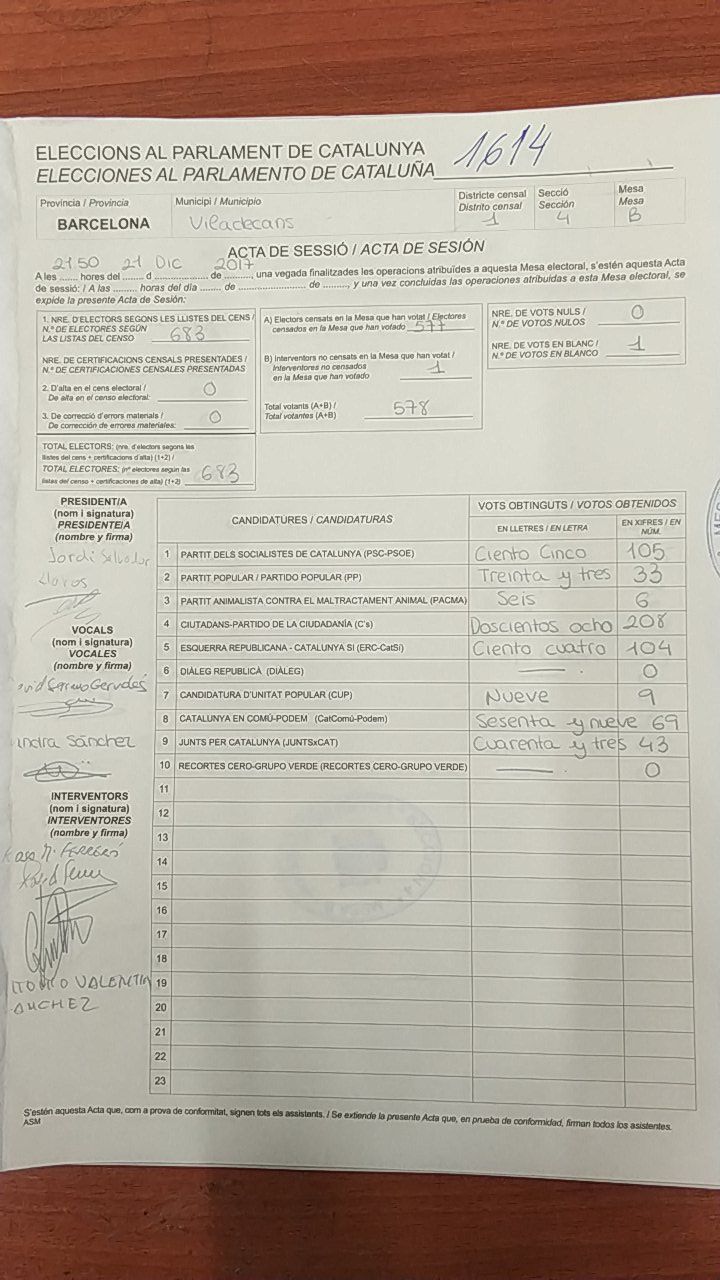 ELECCIONS AL PARLAMENT DE CATALUNYA
ELECCIONES AL PARLAMENTO DE CATALUÑA
1614
Província / Provincia
BARCELONA
Municipi / Municipio
Viladecans
Districte censal
Distrito censal
1
Secció
Sección
4
Mesa
Mesa
B
ACTA DE SESSIÓ / ACTA DE SESIÓN
21 50 21 DIC 2017
A les ....... hores del ....... d ................. de ........., una vegada finalitzades les operacions atribuïdes a aquesta Mesa electoral, s'estén aquesta Acta
de sessió: / A las ......... horas del día ....... de ................. de ........, y una vez concluidas las operaciones atribuidas a esta Mesa electoral, se
expide la presente Acta de Sesión:
1. NRE. D'ELECTORS SEGONS LES LLISTES DEL CENS /
N.º DE ELECTORES SEGÚN
LAS LISTAS DEL CENSO 683
NRE. DE CERTIFICACIONS CENSALS PRESENTADES /
N.º DE CERTIFICACIONES CENSALES PRESENTADAS
2. D'alta en el cens electoral /
De alta en el censo electoral: 0
3. De correcció d'errors materials /
De corrección de errores materiales: 0
TOTAL ELECTORS: (nre. d'electors segons les
llistes del cens + certificacions d'alta) (1+2) /
TOTAL ELECTORES: (nº electores según las
listas del censo + certificaciones de alta) (1+2) 683
A) Electors censats en la Mesa que han votat / Electores
censados en la Mesa que han votado 577
B) Interventors no censats en la Mesa que han votat /
Interventores no censados
en la Mesa que han votado 1
Total votants (A+B) /
Total votantes (A+B) 578
NRE. DE VOTS NULS /
N.º DE VOTOS NULOS 0
NRE. DE VOTS EN BLANC /
N.º DE VOTOS EN BLANCO 1
PRESIDENT/A
(nom i signatura)
PRESIDENTE/A
(nombre y firma)
Jordi Salvador
VOCALS
(nom i signatura)
VOCALES
(nombre y firma)
Sánchez
INTERVENTORS
(nom i signatura)
INTERVENTORES
(nombre y firma)
VALENTIN
CANDIDATURES / CANDIDATURAS
VOTS OBTINGUTS / VOTOS OBTENIDOS
EN LLETRES / EN LETRA
EN XIFRES / EN
NÚM.
1 PARTIT DELS SOCIALISTES DE CATALUNYA (PSC-PSOE) Ciento Cinco 105
2 PARTIT POPULAR / PARTIDO POPULAR (PP) Treinta y tres 33
3 PARTIT ANIMALISTA CONTRA EL MALTRACTAMENT ANIMAL (PACMA) Seis 6
4 CIUTADANS-PARTIDO DE LA CIUDADANÍA (C's) Doscientos ocho 208
5 ESQUERRA REPUBLICANA - CATALUNYA SI (ERC-CatSí) Ciento cuatro 104
6 DIÀLEG REPUBLICÀ (DIÀLEG) — 0
7 CANDIDATURA D'UNITAT POPULAR (CUP) Nueve 9
8 CATALUNYA EN COMÚ-PODEM (CatComú-Podem) Sesenta y nueve 69
9 JUNTS PER CATALUNYA (JUNTSxCAT) Cuarenta y tres 43
10 RECORTES CERO-GRUPO VERDE (RECORTES CERO-GRUPO VERDE) — 0
11
12
13
14
15
16
17
18
19
20
21
22
23
S'estén aquesta Acta que, com a prova de conformitat, signen tots els assistents. / Se extiende la presente Acta que, en prueba de conformidad, firman todos los asistentes.
ASM